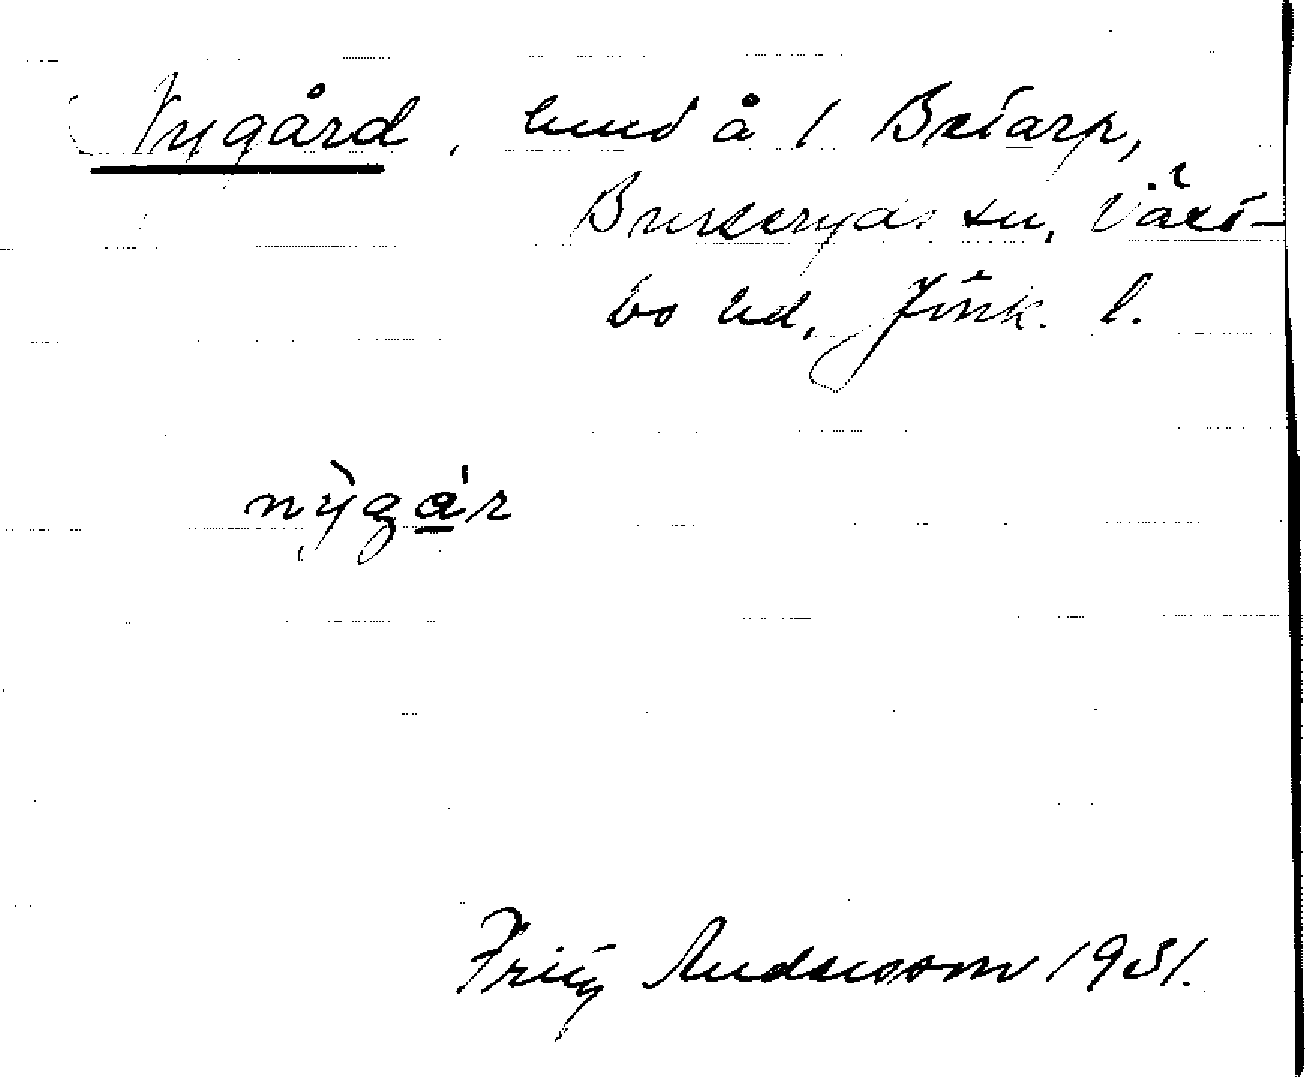 Nygård, hmd å 1 Betarp,
Burseryds sn, Väst-
bo hd, Jönk. l.
nỳgár
Fritz Andersson 1931.